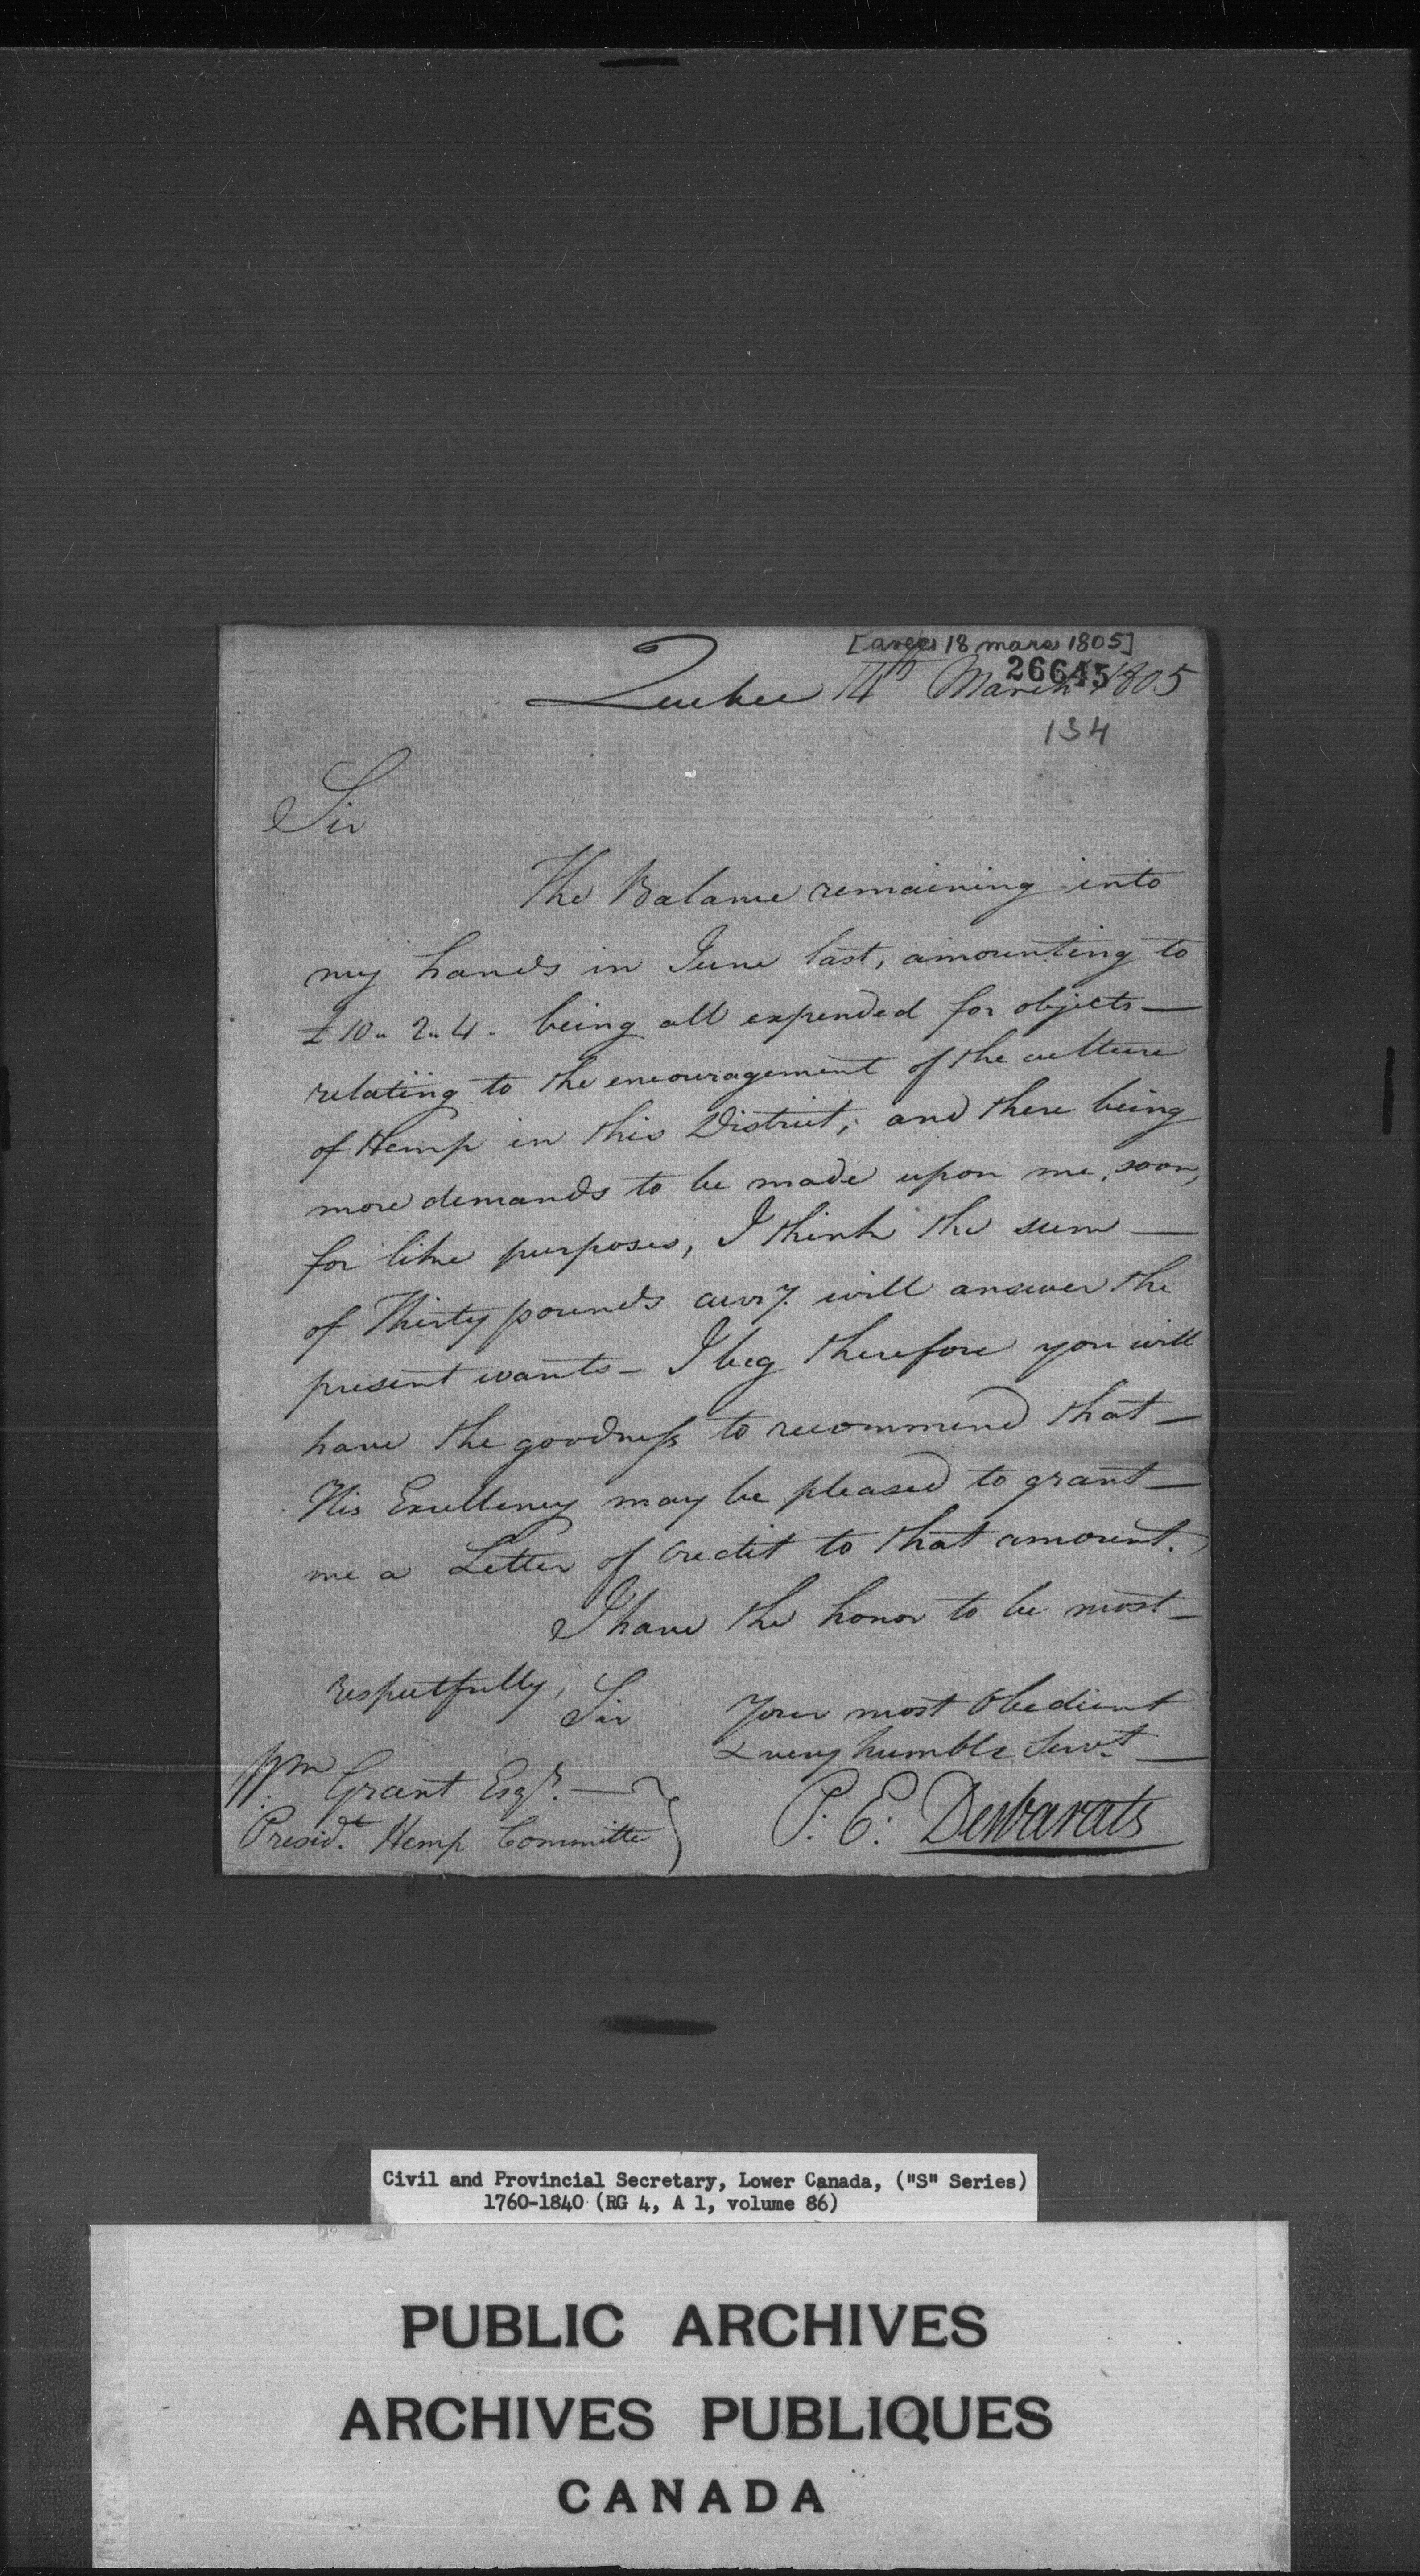 [avec 18 mars 1805]
26645
Quebec 14th March 1805
134
Sir
The Balance remaining into
my hands in June last, amounting to
£10.. 2.. 4. being all expended for objects —
relating to the encouragement of the culture
of Hemp in this District; and there being
more demands to be made upon me, soon,
for like purposes, I think the sum —
of Thirty pounds curry. will answer the
present wants — I beg therefore you will
have the goodness to recommend that —
His Excellency may be pleased to grant —
me a Letter of Credit to that amount.
I have the honor to be most —
respectfully,
Sir
Your most Obedient
& very humble Servt. —
P. E. Desbarats
Wm. Grant Esqr. —
Presidt. Hemp Committe
Civil and Provincial Secretary, Lower Canada, ("S" Series)
1760-1840 (RG 4, A 1, volume 86)
PUBLIC ARCHIVES
ARCHIVES PUBLIQUES
CANADA